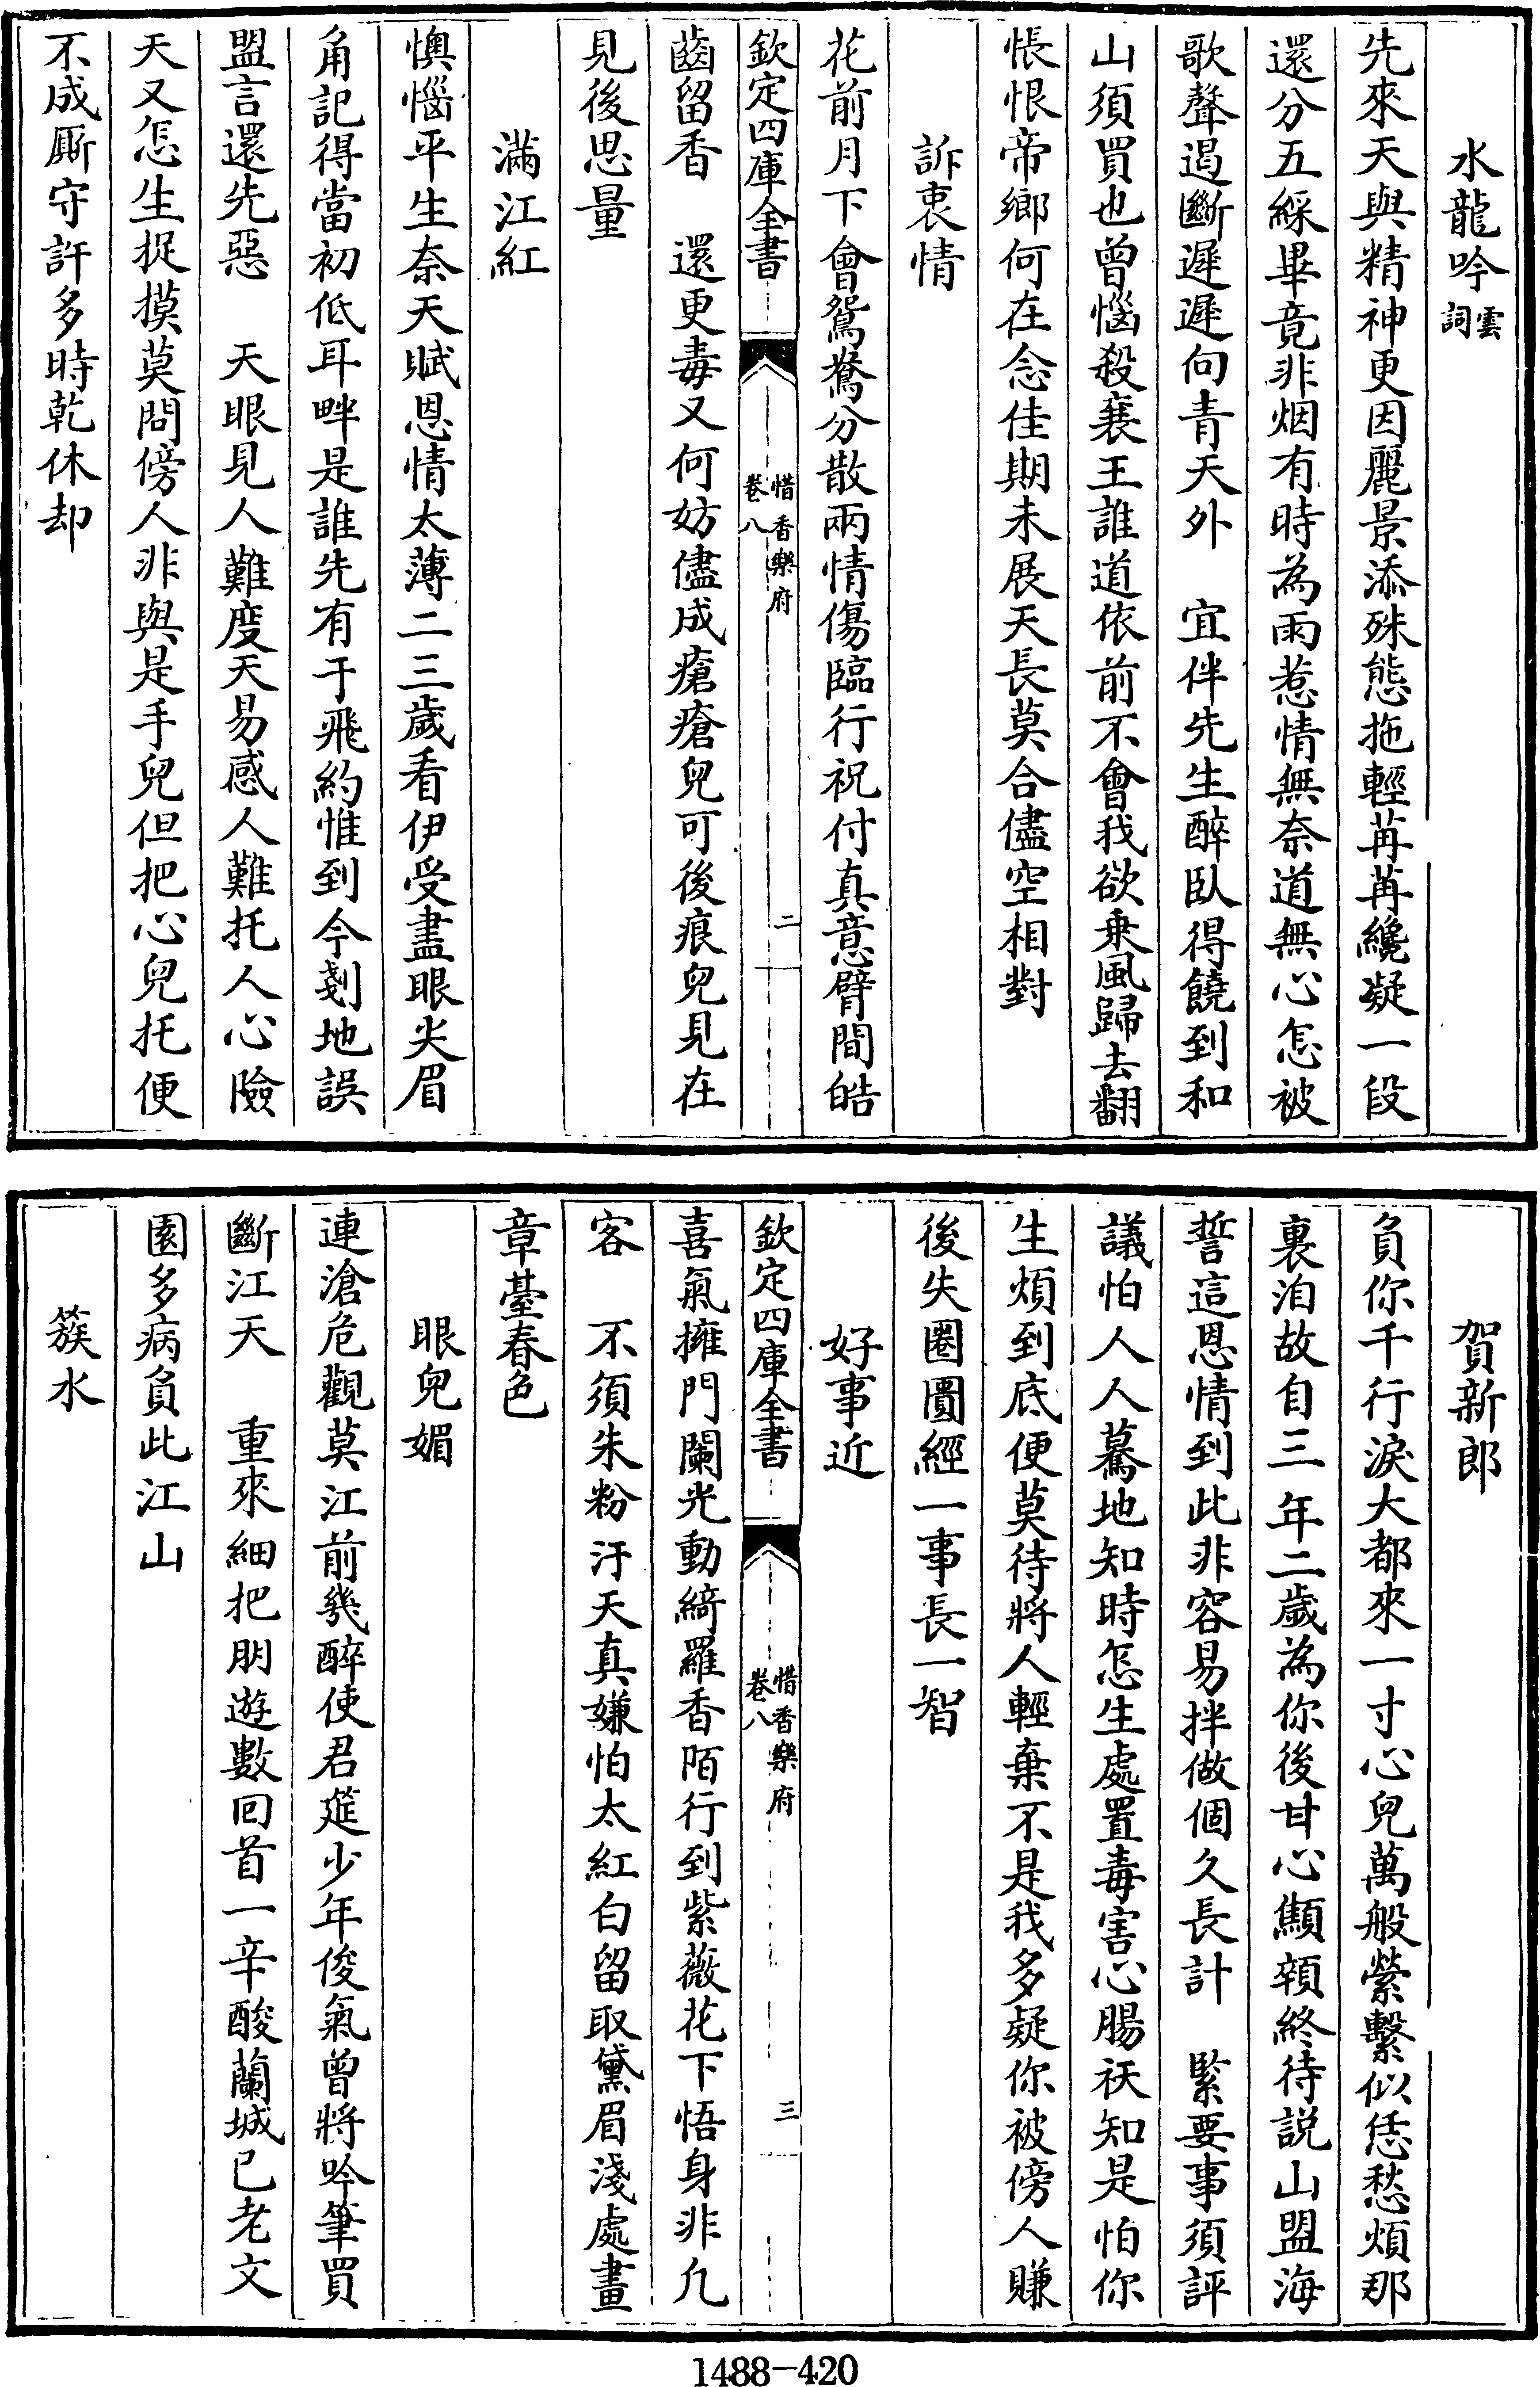 水龍吟雲詞
先來天與精神更因麗景添殊態拖輕苒苒纔凝一段
還分五綵畢竟非烟有時為雨惹情無奈道無心怎被
歌聲遏斷遲遲向青天外　宜伴先生醉臥得饒到和
山須買也曾惱殺襄王誰道依前不會我欲乗風歸去翻
悵恨帝鄉何在念佳期未展天長莫合儘空相對
訴衷情
花前月下會鴛鴦分散兩情傷臨行祝付真意臂間皓
欽定四庫全書
惜香樂府
卷八
二
齒留香　還更毒又何妨儘成瘡瘡兒可後痕兒見在
見後思量
滿江紅
懊惱平生奈天賦恩情太薄二三歲看伊受盡眼尖眉
角記得當初低耳畔是誰先有于飛約惟到今剗地誤
盟言還先惡　天眼見人難度天易感人難托人心險
天又怎生捉摸莫問傍人非與是手兒但把心兒托便
不成厮守許多時乾休却
賀新郎
負你千行淚大都來一寸心兒萬般縈繫似恁愁煩那
裏泊故自三年二歲為你後甘心顦顇終待説山盟海
誓這恩情到此非容易拌做個久長計　緊要事須評
議怕人人驀地知時怎生處置毒害心腸祆知是怕你
生煩到底便莫待將人輕棄不是我多疑你被傍人賺
後失圈圚經一事長一智
好事近
欽定四庫全書
惜香樂府
卷八
三
喜氣擁門闌光動綺羅香陌行到紫薇花下悟身非凡
客　不須朱粉汙天真嫌怕太紅白留取黛眉淺處畫
章臺春色
眼兒媚
連滄危觀莫江前幾醉使君筵少年俊氣曾將吟筆買
斷江天　重來細把朋遊數回首一辛酸蘭城已老文
園多病負此江山
簇水
1488-420